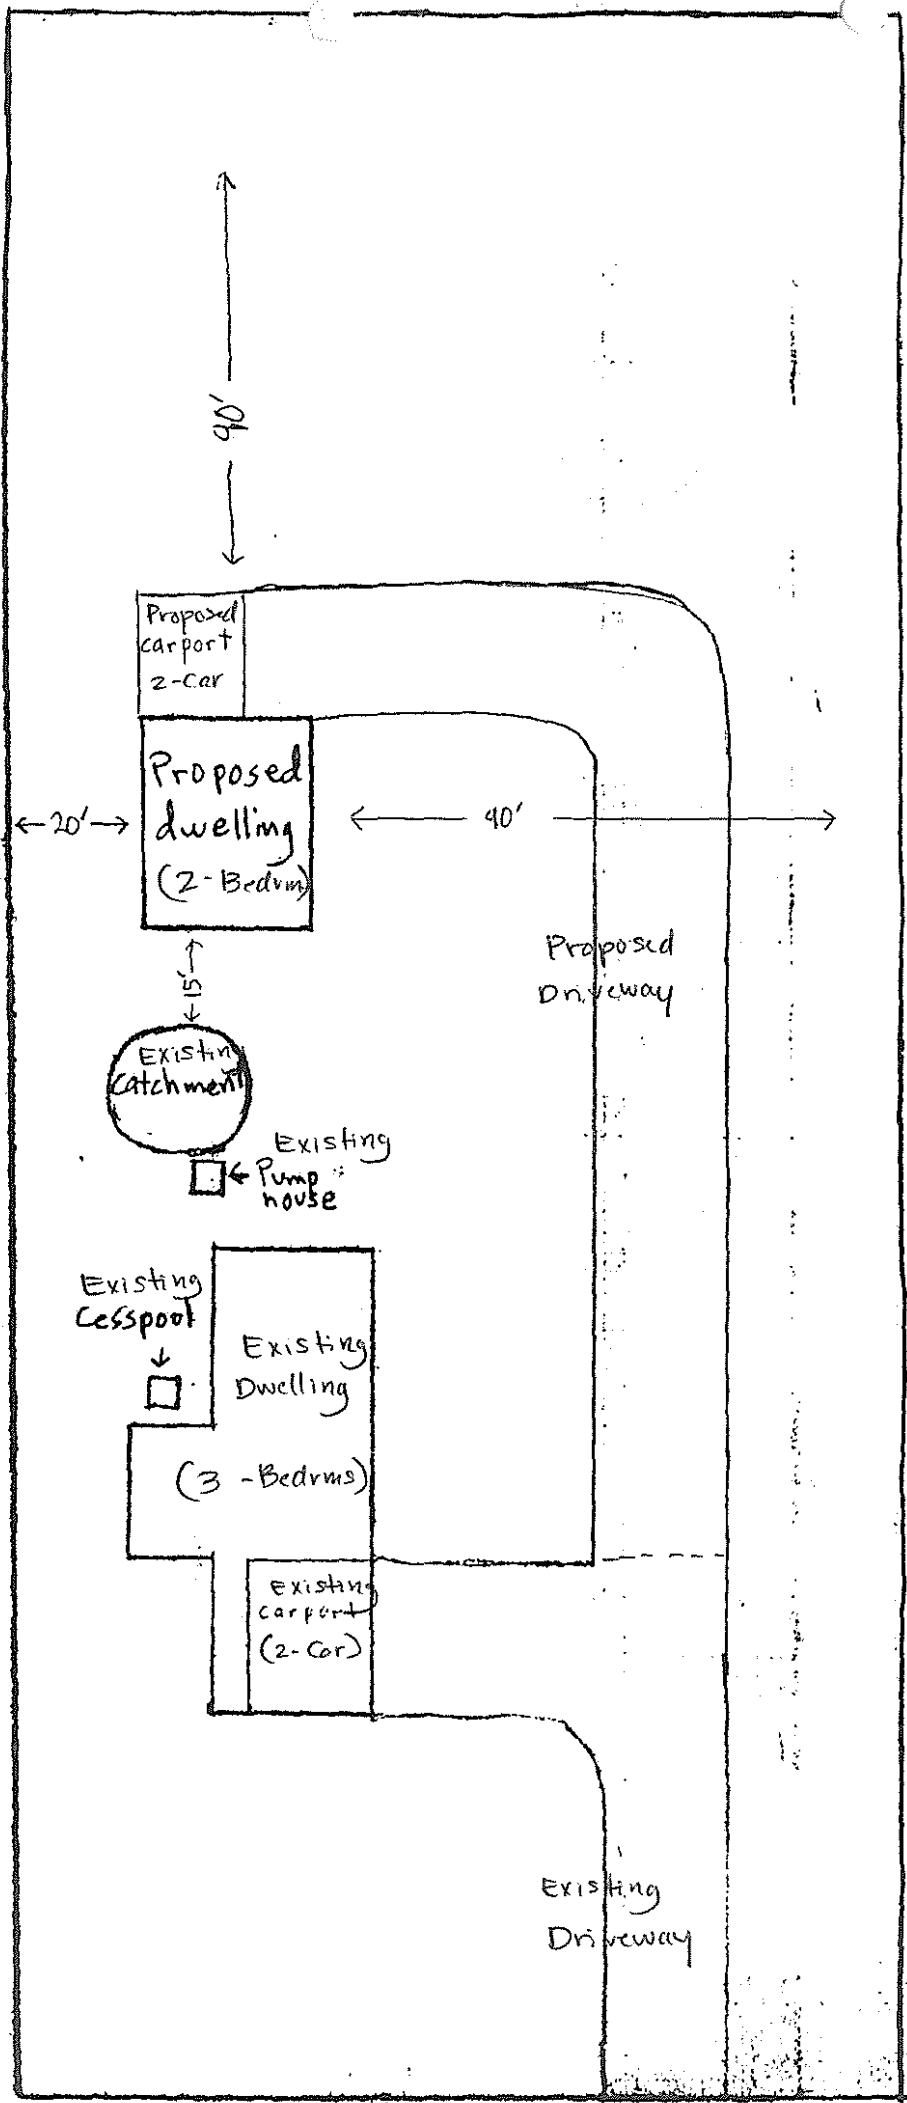 90'
Proposed
carport
2-Car
Proposed
dwelling
(2-Bedrm)
20'
90'
Proposed
Driveway
15'
Existing
Catchment
Existing
Pump
house
Existing
Cesspool
Existing
Dwelling
(3-Bedrms)
Existing
carport
(2-Car)
Existing
Driveway